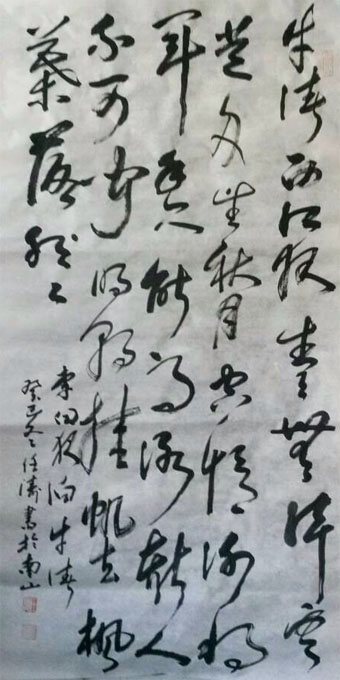 牛渚西江夜青天無片雲
登舟望秋月空憶謝將
軍余亦能高詠斯人
不可聞明朝挂帆去楓
葉落紛々
李白夜泊牛渚
癸巳冬任濤書於南山